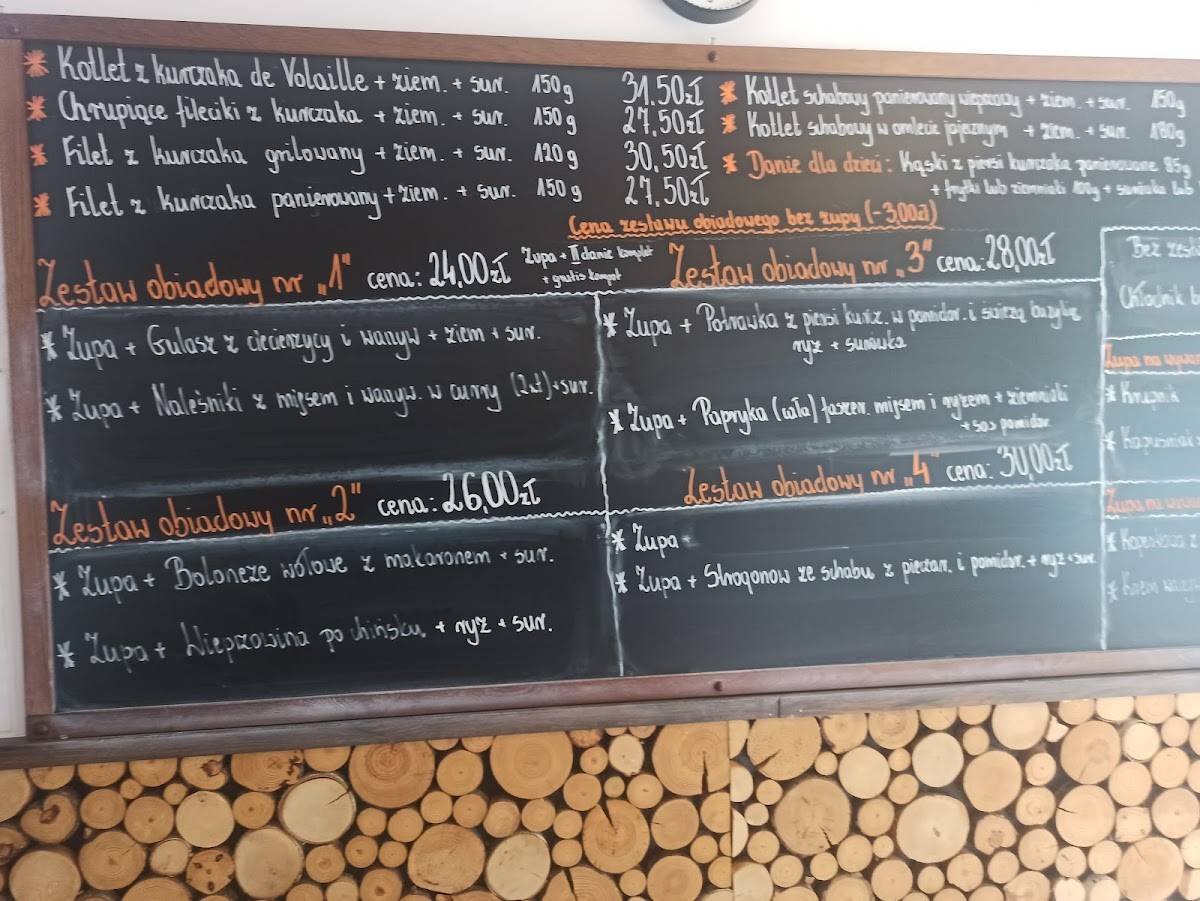 * Kotlet z kurczaka de Volaille + ziem. + sur. 150g 31.50zł
* Chrupiące fileciki z kurczaka + ziem. + sur. 150g 27.50zł
* Filet z kurczaka grilowany + ziem. + sur. 120g 30.50zł
* Filet z kurczaka panierowany + ziem. + sur. 150g 27.50zł
* Kotlet schabowy panierowany wieprzowy + ziem. + sur. 150g
* Kotlet schabowy w omlecie jajecznym + ziem. + sur. 180g
* Danie dla dzieci: Kąski z piersi kurczaka panierowane 85g
+ frytki lub ziemniaki 100g + surówka lub
Cena zestawu obiadowego bez zupy (-3,00zł)
Zestaw obiadowy nr „1" cena: 24,00zł
Zupa + II danie komplet
+ gratis kompot
* Zupa + Gulasz z ciecierzycy i warzyw + ziem + sur.
* Zupa + Naleśniki z mięsem i warzyw. w curry (2szt) + sur.
Zestaw obiadowy nr „2" cena: 26,00zł
* Zupa + Boloneze wołowe z makaronem + sur.
* Zupa + Wieprzowina po chińsku + ryż + sur.
Zestaw obiadowy nr „3" cena: 28,00zł
* Zupa + Potrawka z piersi kurz. w pomidor. i świeżą bazylią
ryż + surówka
* Zupa + Papryka (cała) faszer. mięsem i ryżem + ziemniaki
+ sos pomidor.
Zestaw obiadowy nr „4" cena: 30,00zł
* Zupa +
* Zupa + Strogonow ze schabu z pieczar. i pomidor. + ryż + sur.
Bez zest
Chłodnik
Zupa na wyno
* Krupnik
* Kapuśniak
Zupa na
* Krem